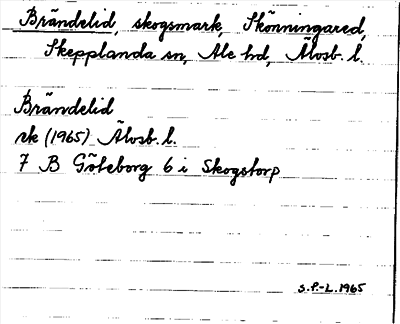 Brändelid, skogsmark, Skönningared,
Skepplanda sn, Ale hd, Älvsb. l.
Brändelid
rk (1965) Älvsb. l.
7 B Göteborg 6 i Skogstorp
S.P.-L. 1965